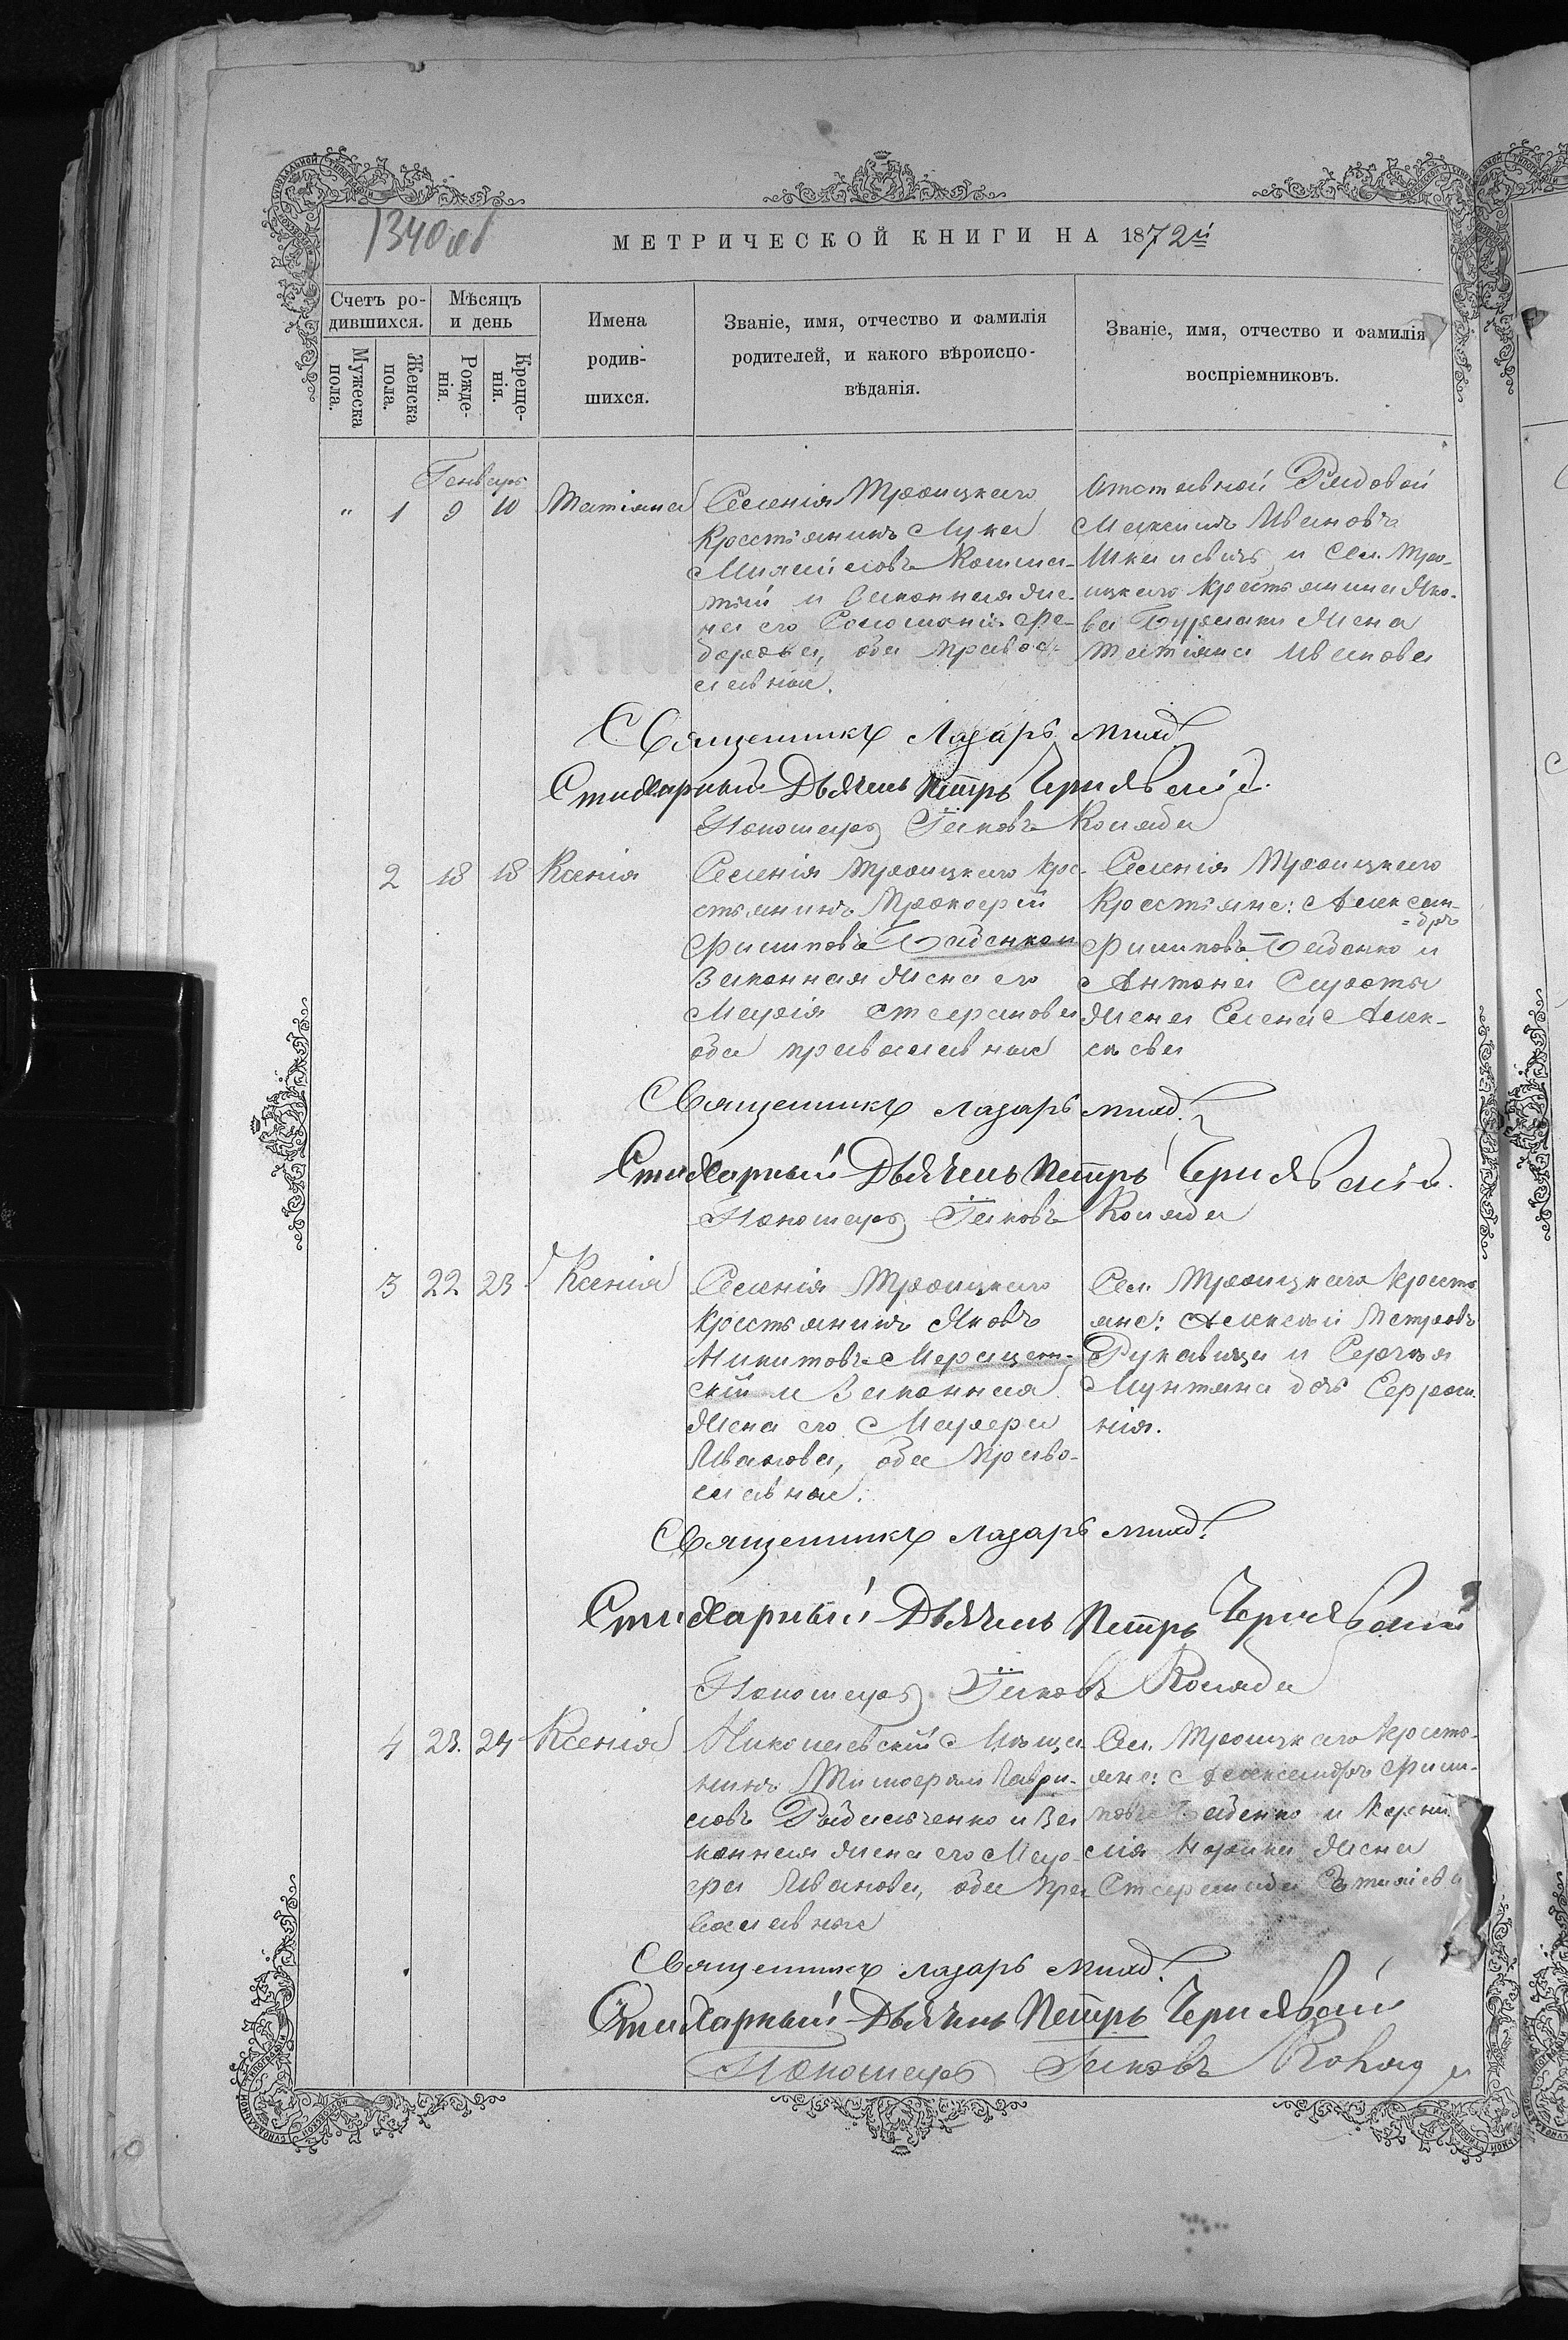 1340 об
МЕТРИЧЕСКОЙ КНИГИ НА 1872й
Счетъ ро-
дившихся.
Мужеска
пола.
Женска
пола.
Мѣсяцъ
и день
Рожде-
нія.
Креще-
нія.
Имена
родив-
шихся.
Званіе, имя, отчество и фамилія
родителей, и какого вѣроиспо-
вѣданія.
Званіе, имя, отчество и фамилія
воспріемниковъ.
Генварь
" 1 9 10 Татіана
Селенія Троицкаго
Крестьянинъ Лука
и Законная Же-
на его Соломонія Фе-
дорова, оба Правос-
лавные.
Отставной Рядовой
Максимъ Ивановъ
и Сел. Тро-
ицкаго Крестьянина Яко-
ва Бурлаки Жена
Татіана Иванова
Священникъ Лазарь
Стихарный Дьячекъ Петръ Чернявскій.
Пономарь Іаковъ Коляда
2 18 18 Ксенія
Селенія Троицкаго Кре-
стьянинъ Прокофій
Филиповъ Бабенко и
Законная Жена его
Марія Стефанова
оба православные
Селенія Троицкаго
Крестьяне: Алексан-
=дръ
Филиповъ Бабенко и
Антона Сироты
Жена Елена Алек-
сѣева
Священникъ Лазарь
Стихарный Дьячекъ Петръ Чернявскій.
Пономарь Іаковъ Коляда
3 22 23 Ксенія
Селенія Троицкаго
Крестьянинъ Яковъ
Никитовъ
скій и Законная
Жена его Марфа
Иванова, оба Право-
славные.
Сел. Троицкаго Кресть-
яне: Алексѣй Петровъ
Рукавица и Сергія
Мунтяна дочь Евфро-
нія.
Священникъ Лазарь
Стихарный Дьячекъ Петръ Чернявскій
Пономарь Іаковъ Коляда
4 23. 24 Ксенія
Николаевскій Мѣща-
нинъ Тимофей Гаври-
ловъ и За-
конная Жена его Мар-
фа Иванова, оба Пра-
вославные
Сел. Троицкаго Кресть-
яне: Александръ Фили-
повъ Бабенко и Корни-
лія Жена
Стефанида
Священникъ Лазарь
Стихарный Дьячекъ Петръ Чернявскій
Пономарь Іаковъ Коляда